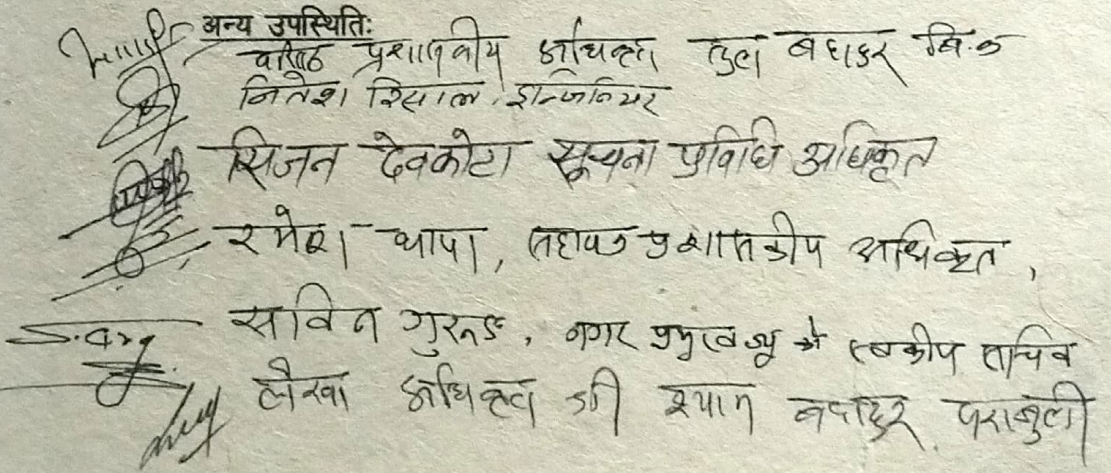 अन्य उपस्थितिः
वरिष्ठ प्रशासकीय अधिकृत तुल बहादुर बि.क
नितेश रिसाल, इन्जिनियर
सिजन देवकोटा सूचना प्रविधि अधिकृत
रमेश थापा, सहायक प्रशासकीय अधिकृत,
सविन गुरुङ, नगर प्रमुखज्यू को स्वकीय सचिव
लेखा अधिकृत श्री श्याम बहादुर पराजुली